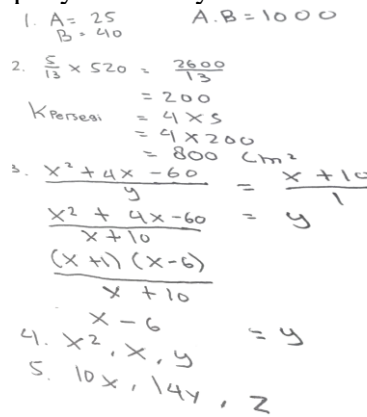 1. A = 25 A.B = 1000
B = 40
2. 5/13 × 520 = 2600/13
= 200
K Persegi = 4 × s
= 4 × 200
= 800 cm²
3. x² + 4x - 60 / y = x + 10 / 1
x² + 4x - 60 / x + 10 = y
(x + 1) (x - 6) / x + 10
x - 6 = y
4. x², x, y
5. 10x, 14y, 2